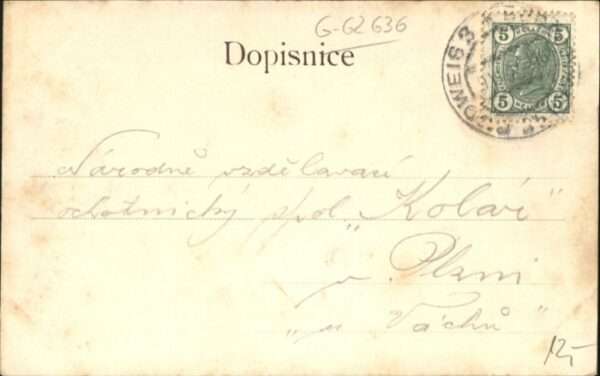 G-G2636
Dopisnice
5 5
5 5
Národně vzdělavací
ochotnický spol. "Kolár"
v Plzni
"u Váchů"
12,-